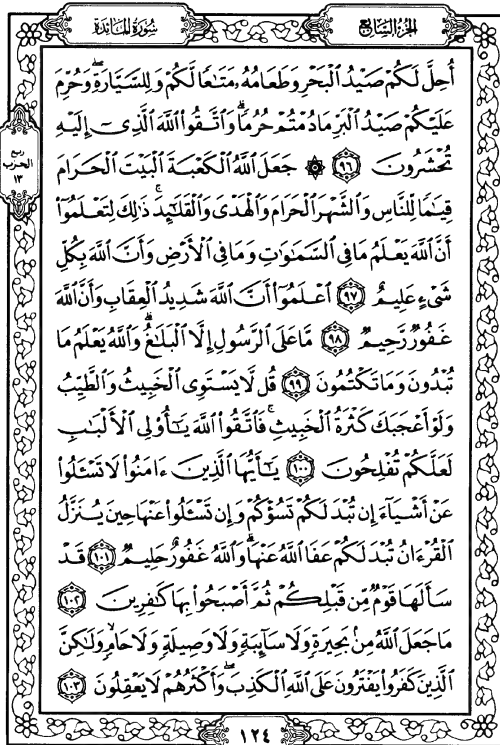 الجزء السابع
سُورَةُ المَائدَة
ربع
الحزب
١٣
أُحِلَّ لَكُمۡ صَيۡدُ ٱلۡبَحۡرِ وَطَعَامُهُۥ مَتَٰعٗا لَّكُمۡ وَلِلسَّيَّارَةِۖ وَحُرِّمَ
عَلَيۡكُمۡ صَيۡدُ ٱلۡبَرِّ مَا دُمۡتُمۡ حُرُمٗاۗ وَٱتَّقُواْ ٱللَّهَ ٱلَّذِيٓ إِلَيۡهِ
تُحۡشَرُونَ ٩٦ ۞ جَعَلَ ٱللَّهُ ٱلۡكَعۡبَةَ ٱلۡبَيۡتَ ٱلۡحَرَامَ
قِيَٰمٗا لِّلنَّاسِ وَٱلشَّهۡرَ ٱلۡحَرَامَ وَٱلۡهَدۡيَ وَٱلۡقَلَٰٓئِدَۚ ذَٰلِكَ لِتَعۡلَمُوٓاْ
أَنَّ ٱللَّهَ يَعۡلَمُ مَا فِي ٱلسَّمَٰوَٰتِ وَمَا فِي ٱلۡأَرۡضِ وَأَنَّ ٱللَّهَ بِكُلِّ
شَيۡءٍ عَلِيمٌ ٩٧ ٱعۡلَمُوٓاْ أَنَّ ٱللَّهَ شَدِيدُ ٱلۡعِقَابِ وَأَنَّ ٱللَّهَ
غَفُورٞ رَّحِيمٞ ٩٨ مَّا عَلَى ٱلرَّسُولِ إِلَّا ٱلۡبَلَٰغُۗ وَٱللَّهُ يَعۡلَمُ مَا
تُبۡدُونَ وَمَا تَكۡتُمُونَ ٩٩ قُل لَّا يَسۡتَوِي ٱلۡخَبِيثُ وَٱلطَّيِّبُ
وَلَوۡ أَعۡجَبَكَ كَثۡرَةُ ٱلۡخَبِيثِۚ فَٱتَّقُواْ ٱللَّهَ يَٰٓأُوْلِي ٱلۡأَلۡبَٰبِ
لَعَلَّكُمۡ تُفۡلِحُونَ ١٠٠ يَٰٓأَيُّهَا ٱلَّذِينَ ءَامَنُواْ لَا تَسۡـَٔلُواْ
عَنۡ أَشۡيَآءَ إِن تُبۡدَ لَكُمۡ تَسُؤۡكُمۡ وَإِن تَسۡـَٔلُواْ عَنۡهَا حِينَ يُنَزَّلُ
ٱلۡقُرۡءَانُ تُبۡدَ لَكُمۡ عَفَا ٱللَّهُ عَنۡهَاۗ وَٱللَّهُ غَفُورٌ حَلِيمٞ ١٠١ قَدۡ
سَأَلَهَا قَوۡمٞ مِّن قَبۡلِكُمۡ ثُمَّ أَصۡبَحُواْ بِهَا كَٰفِرِينَ ١٠٢
مَا جَعَلَ ٱللَّهُ مِنۢ بَحِيرَةٖ وَلَا سَآئِبَةٖ وَلَا وَصِيلَةٖ وَلَا حَامٖ وَلَٰكِنَّ
ٱلَّذِينَ كَفَرُواْ يَفۡتَرُونَ عَلَى ٱللَّهِ ٱلۡكَذِبَۖ وَأَكۡثَرُهُمۡ لَا يَعۡقِلُونَ ١٠٣
١٢٤